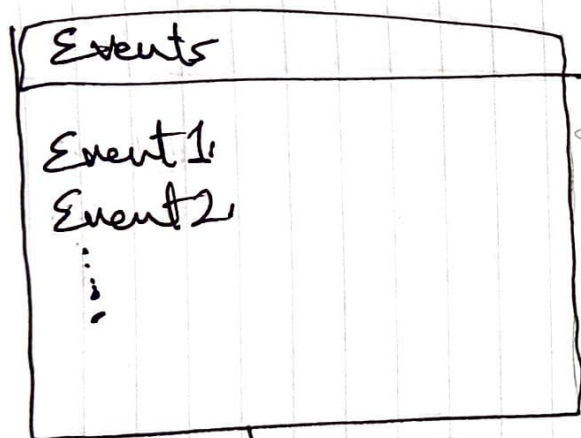 Events
Event 1
Event 2